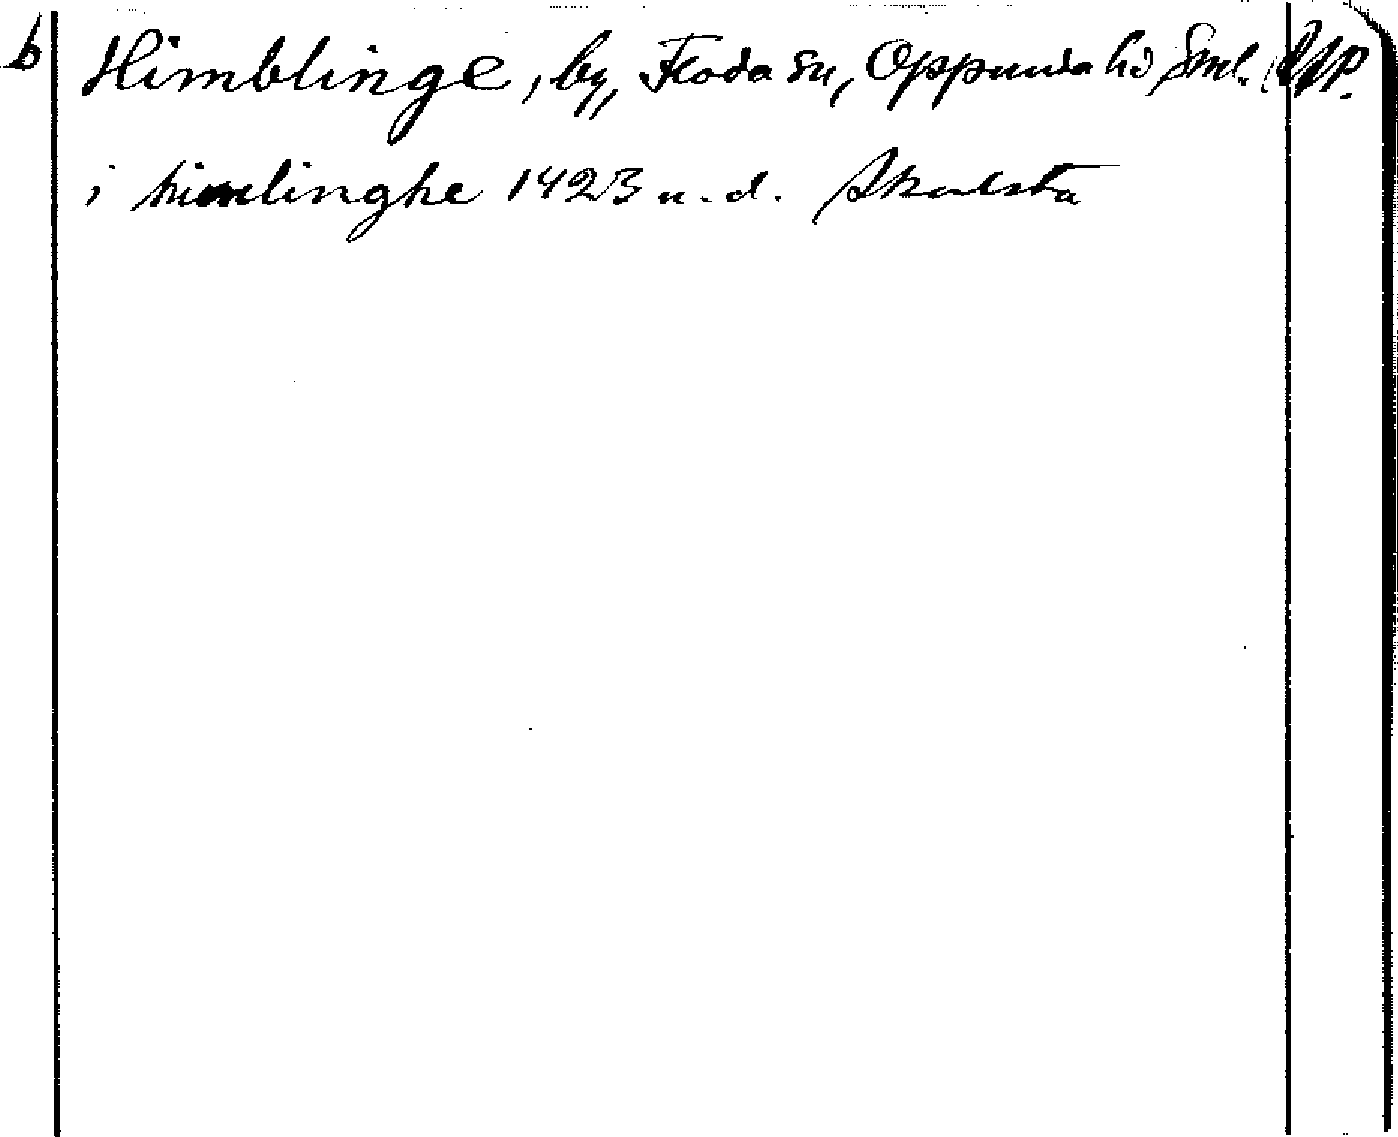 b Himblinge, by, Floda sn, Oppunda hd Sml.
i himlinghe 1423 u.d. Skulsta